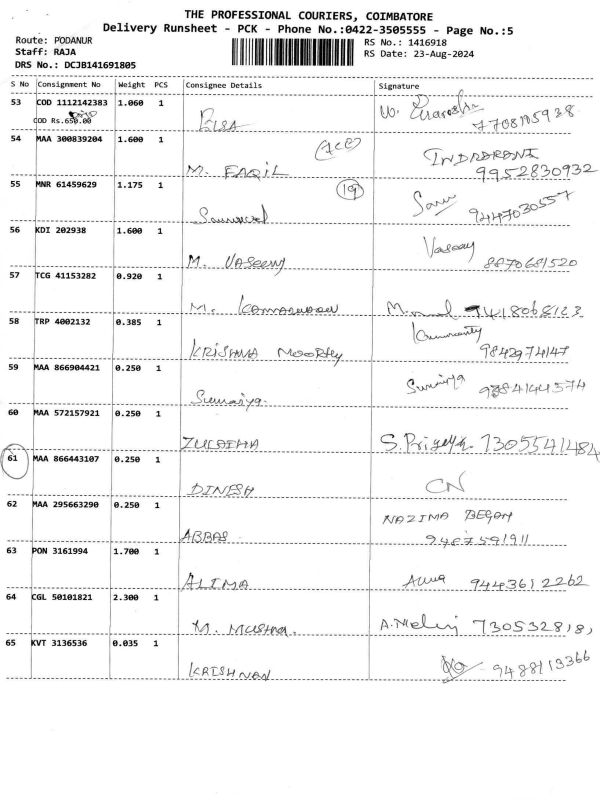 THE PROFESSIONAL COURIERS, COIMBATORE
Delivery Runsheet - PCK - Phone No.:0422-3505555 - Page No.:5
Route: PODANUR
Staff: RAJA
DRS No.: DCJB141691805
RS No.: 1416918
RS Date: 23-Aug-2024
S No Consignment No Weight PCS Consignee Details Signature
53 COD 1112142383 1.060 1
COD Rs.650.00
7708105938
54 MAA 300839204 1.600 1
M. FAQIL INDRARANI
9952830932
55 MNR 61459629 1.175 1 19
9447030557
56 KDI 202938 1.600 1
M. VASEEM 8870681520
57 TCG 41153282 0.920 1
M. 7418068123
58 TRP 4002132 0.385 1
KRISHNA MOORTHY 9842974147
59 MAA 866904421 0.250 1
Sumaiya. Sumaiya 9384144574
60 MAA 572157921 0.250 1
ZULAIHA S. Priya 7305541484
61 MAA 866443107 0.250 1
DINESH CN
62 MAA 295663290 0.250 1 NAZIMA BEGAM
ABBAS 9487591911
63 PON 3161994 1.700 1
ALIMA 9443612262
64 CGL 50101821 2.300 1
M. MUSHNA. 730532818,
65 KVT 3136536 0.035 1
KRISHNAN 9488113366